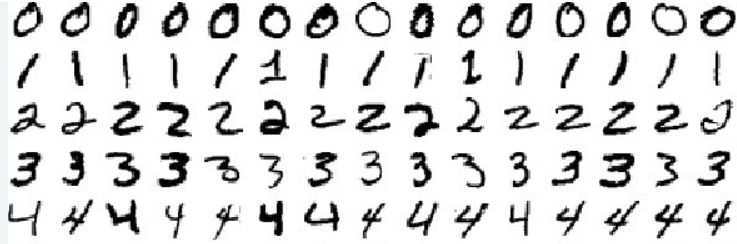 0 0 0 0 0 0 0 0 0 0 0 0 0 0 0
1 1 1 1 1 1 1 1 1 1 1 1 1 1 1
2 2 2 2 2 2 2 2 2 2 2 2 2 2 2
3 3 3 3 3 3 3 3 3 3 3 3 3 3 3
4 4 4 4 4 4 4 4 4 4 4 4 4 4 4